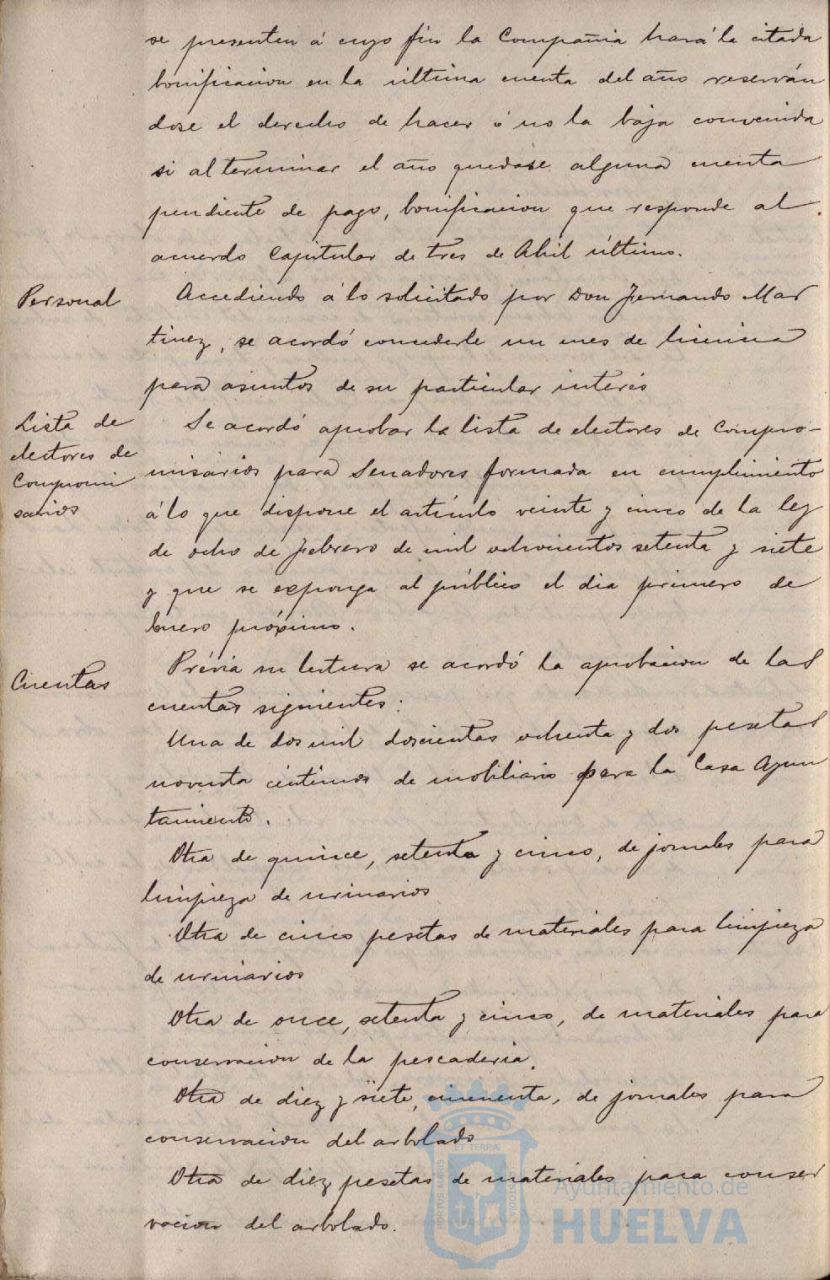 se presenten á cuyo fin la Compañia hará la citada
bonificacion en la última cuenta del año reserván
dose el derecho de hacer ó no la baja convenida
si al terminar el año quedase alguna cuenta
pendiente de pago, bonificacion que responde al
acuerdo Capitular de tres de Abril último.
Personal
Accediendo á lo solicitado por Don Fernando Mar
tinez, se acordó concederle un mes de licencia
para asuntos de su particular interés
Lista de
electores de
Compromi
sarios
Se acordó aprobar la lista de electores de Compro-
misarios para Senadores formada en cumplimiento
á lo que dispone el artículo veinte y cinco de la ley
de ocho de Febrero de mil ochocientos setenta y siete
y que se exponga al público el dia primero de
Enero próximo.
Cuentas
Prévia su lectura se acordó la aprobacion de las
cuentas siguientes:
Una de dos mil doscientas ochenta y dos pesetas
noventa céntimos de mobiliario para la Casa Ayun
tamiento.
Otra de quince, setenta y cinco, de jornales para
limpieza de urinarios
Otra de cinco pesetas de materiales para limpieza
de urinarios
Otra de once, setenta y cinco, de materiales para
conservacion de la pescaderia.
Otra de diez y siete, cincuenta, de jornales para
conservacion del arbolado
Otra de diez pesetas de materiales para conser
vacion del arbolado.
Ayuntamiento de
HUELVA